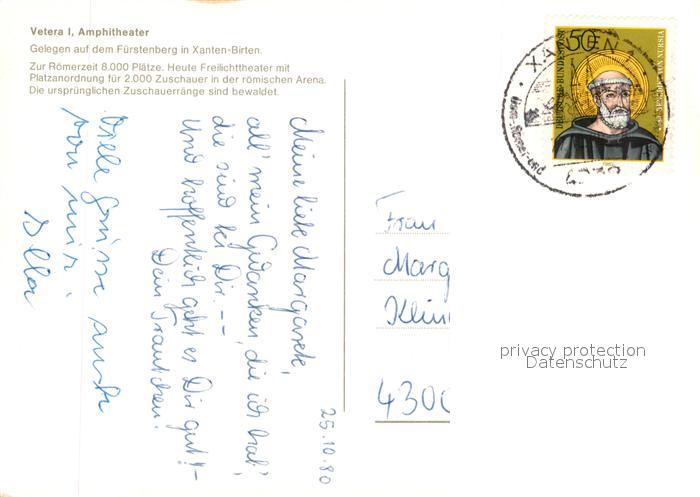 Vetera I, Amphitheater
Gelegen auf dem Fürstenberg in Xanten-Birten.
Zur Römerzeit 8.000 Plätze. Heute Freilichttheater mit
Platzanordnung für 2.000 Zuschauer in der römischen Arena.
Die ursprünglichen Zuschauerränge sind bewaldet.
50
DEUTSCHE BUNDESPOST
VON NURSIA
XANTEN
25.10.80
Meine liebe Margarete,
all' mein Gedanken, die ich hab',
die sind bei Dir. --
Und hoffentlich geht es Dir gut! -
Dein Trautchen.
Viele Grüsse auch
von mir.
Frau
Marg
Klin
4300
privacy protection
Datenschutz